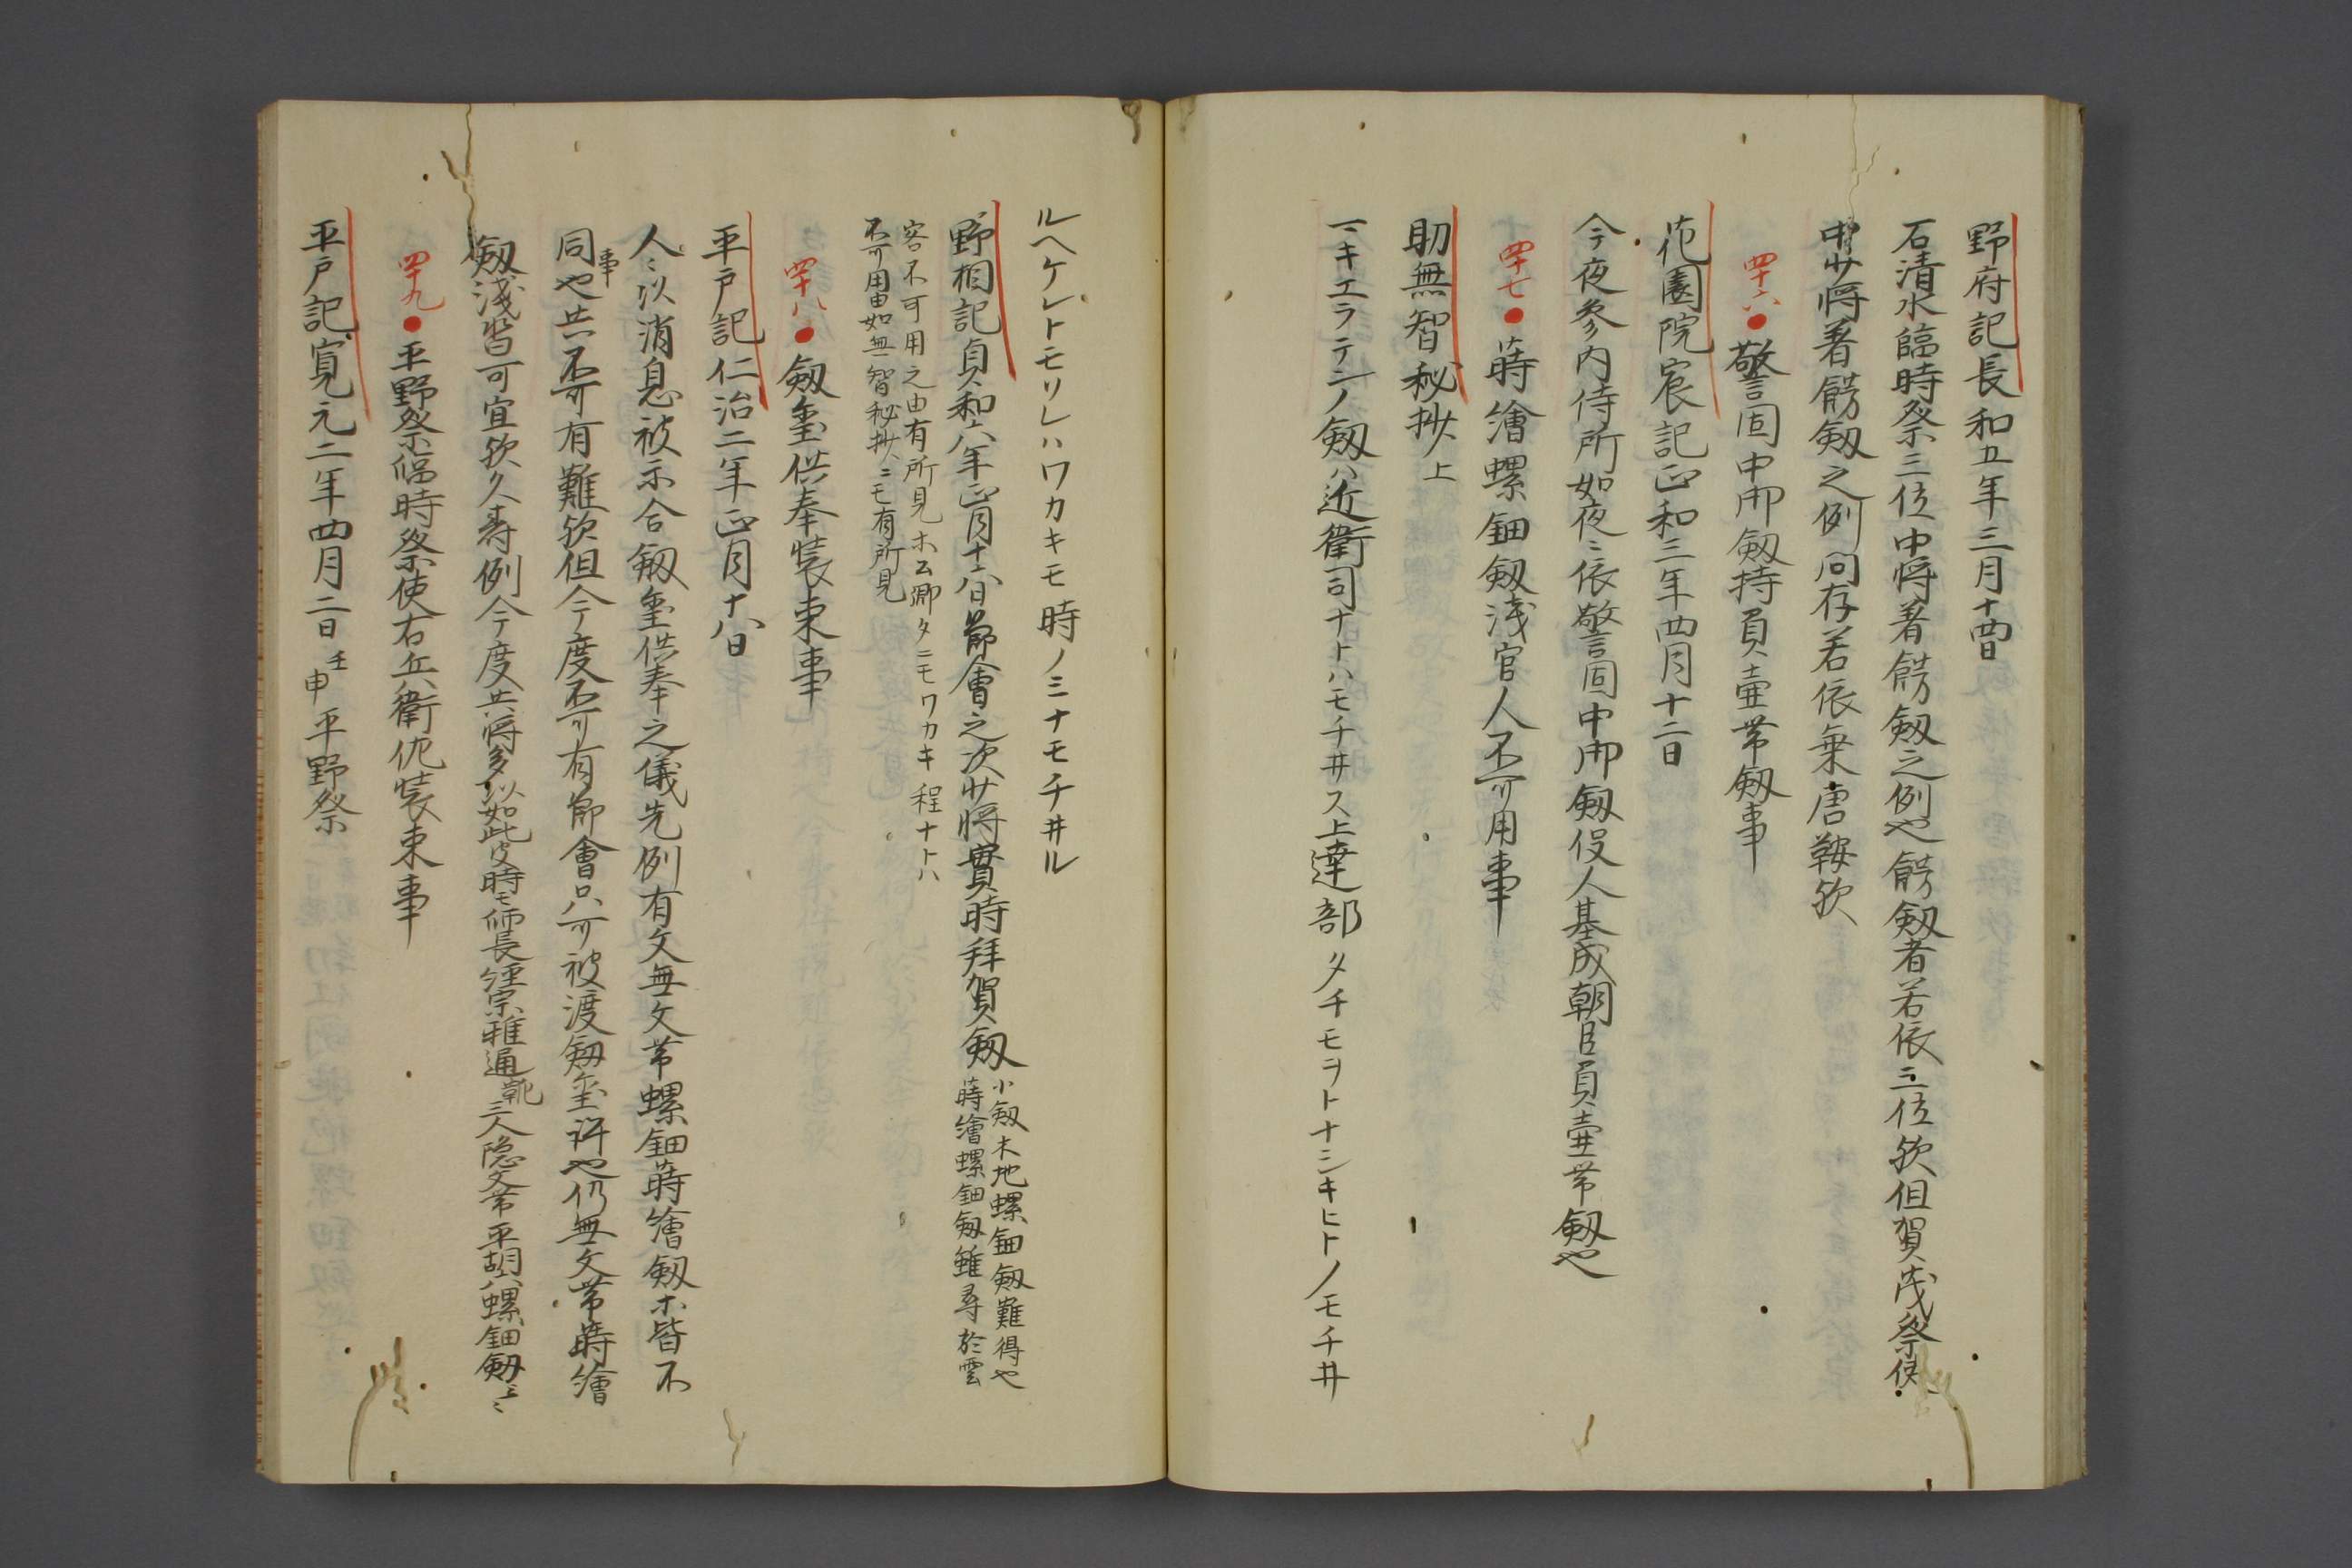 野府記長和五年三月十四日
石清水臨時祭三位中将著餝剱之例也餝剱者若依三位欤但賀茂祭使
中少将著餝剱之例同存若依乗唐鞍欤
四十六●警固中御剱持負壷帯剱事
花園院宸記正和三年四月十二日
今夜参内侍所如夜〻依警固中御剱役人基成朝臣負壷帯剱也
四十七●蒔繪螺鈿剱浅官人不可用事
助無智秘抄上
マキエラテンノ剱ハ近衛司ナトハモチ井ス上達部タチモヲトナシキヒトノモチ井
ルヘケレトモソレハワカキモ時ノミナモチ井ル
野相記貞和六年正月十六日節會之次少将實時拝賀剱小剱木地螺鈿剱難得也
蒔繪螺鈿剱雖尋於雲
客不可用之由有所見ホ公卿タニモワカキ程ナトハ
不可用由如無智秘抄ニモ有所見
四十八●剱璽供奉装束事
平戸記仁治二年正月十八日
人〻以消息被示合剱璽供奉之儀先例有文無文帯螺鈿蒔繪剱ホ皆不
同事也共不可有難欤但今度不可有節會只可被渡剱璽許也仍無文帯蒔繪
剱浅沓可宜欤久寿例今度共将多以如此皮時〻師長経宗雅通靴三人隠文帯平胡螺鈿剱云〻
四十九●平野祭臨時祭使右兵衛佐装束事
平戸記寛元二年四月二日壬申平野祭